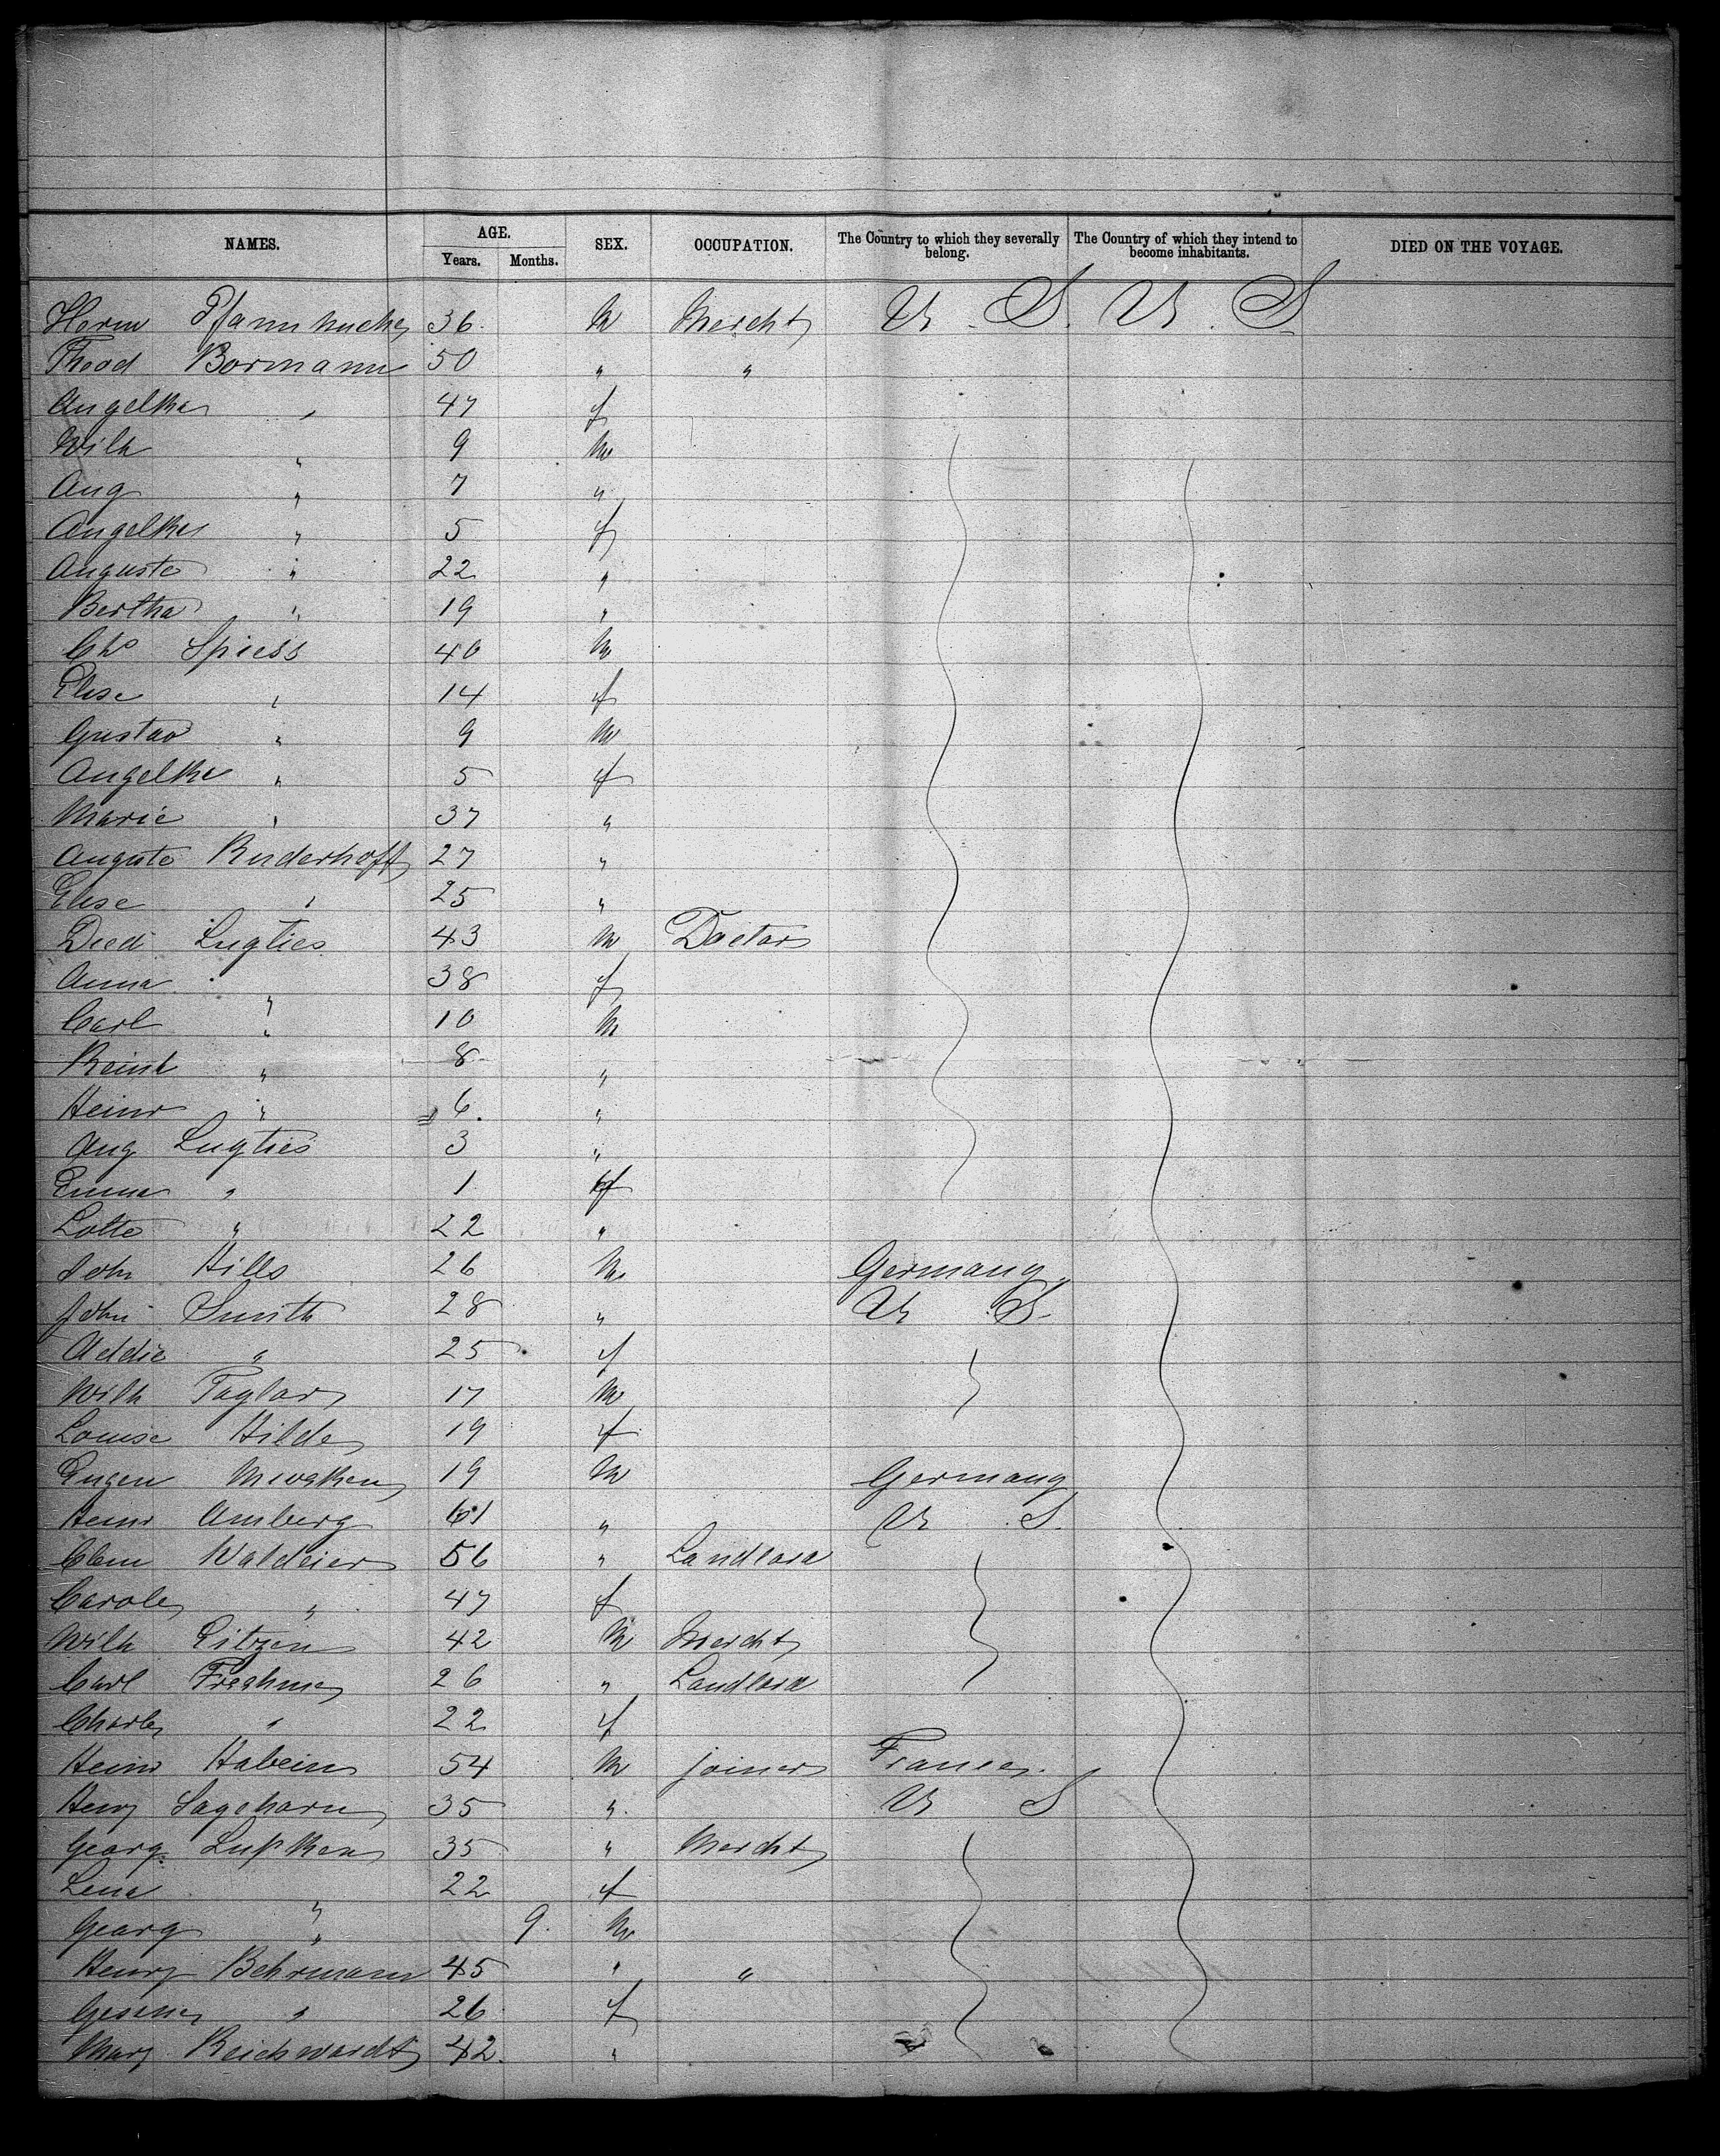 NAMES. AGE. SEX. OCCUPATION. The Country to which they severally belong. The Country of which they intend to become inhabitants. DIED ON THE VOYAGE.
Years. Months.
Herm 36. M Mercht U. S. U. S
Theod Bormann 50 " "
Angelka " 47 f
Wilh " 9 M
Aug " 7 "
Angelka " 5 f
Auguste " 22 "
Bertha " 19 "
Chs Spiess 40 M
Elise " 14 f
Gustav " 9 M
Angelka " 5 f
Marie " 37 "
Auguste Ruderhoff 27 "
Elise " 25 "
Died Lugties 43 M Doctor
Anna " 38 f
Carl " 10 M
Reinh " 8 "
Heinr " 6. "
Aug Lugties 3 "
Emma " 1 f
Lotte " 22 "
John Hills 26 M Germany
John Smith 28 " U S.
Addie " 25 f
Wilh Taylor 17 M
Louise Hilde 19 f
Eugen 19 M Germany
Heinr Amberg 61 " U. S.
Clem Waldeier 56 " Landlord
Carole " 47 f
Wilh Eitzen 42 M Mercht
Carl 26 " Landlord
" 22 f
Heinr Habein 54 M joiner France.
Henry Sagehorn 35 " U S
Georg 35 " Mercht
Lena " 22 f
Georg " 9. M
Henry Behrmann 45 " "
Gesine " 26 f
Mary Reichwardt 42. "